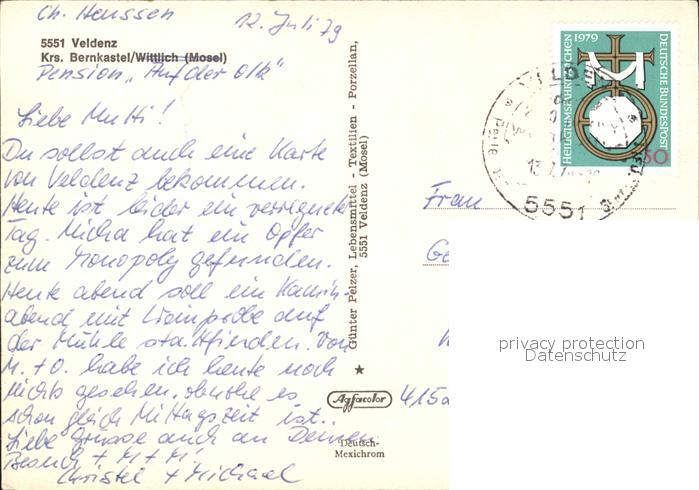 Ch. Heussen 12. Juli 79
5551 Veldenz
Krs. Bernkastel/Wittlich (Mosel)
Pension „Auf der Olk"
Liebe Mutti!
Du sollst auch eine Karte
von Veldenz bekommen.
Heute ist leider ein verregneter
Tag. Micha hat ein Opfer
zum Monopoly gefunden.
Heute abend soll ein Kamin-
abend mit Weinprobe auf
der Mühle stattfinden. Von
M. + O. habe ich heute noch
nichts gesehen, obwohl es
schon gleich Mittagszeit ist..
Liebe Grüsse auch an Deinen
Besuch + M + M.
Christel + Michael
Günter Pelzer, Lebensmittel - Textilien - Porzellan,
5551 Veldenz (Mosel)
Agfacolor
Deutsch-
Mexichrom
HEILIGTUMSFAHRT AACHEN 1979
DEUTSCHE BUNDESPOST
50
5551
Frau
415
privacy protection
Datenschutz